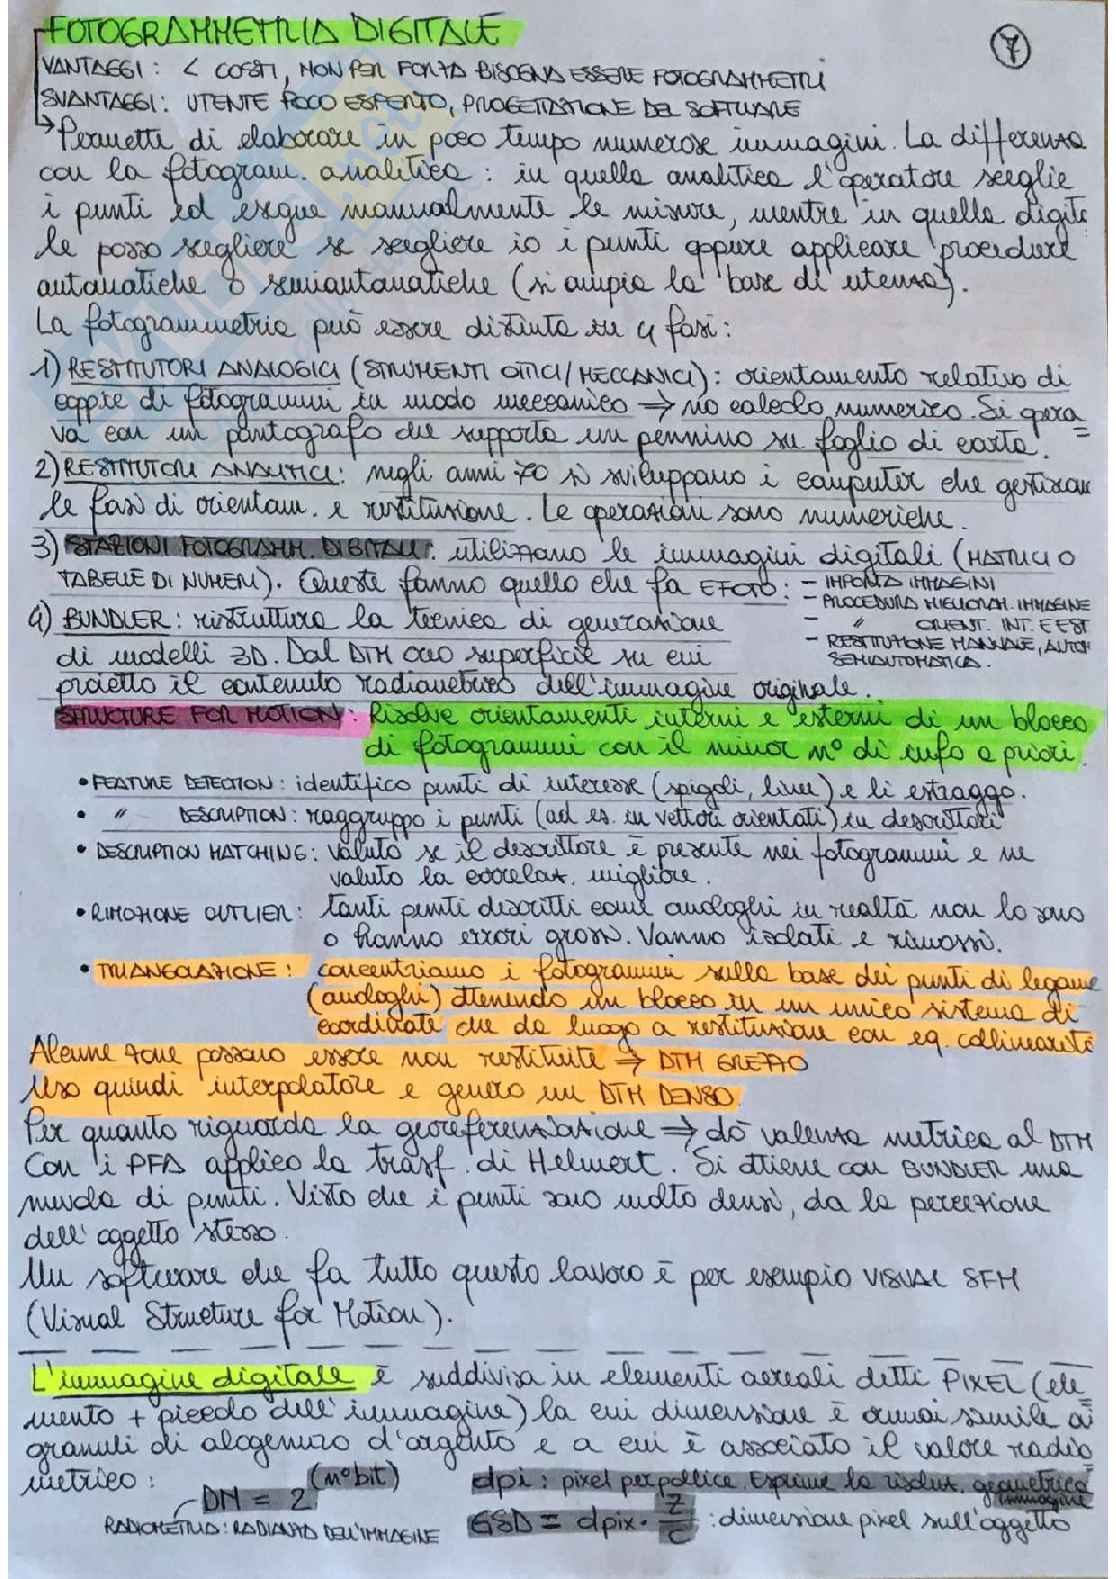 FOTOGRAMMETRIA DIGITALE
7
VANTAGGI: < COSTI, NON PER FORZA BISOGNA ESSERE FOTOGRAMMETRI
SVANTAGGI: UTENTE POCO ESPERTO, PROGETTAZIONE DEL SOFTWARE
→ Permette di elaborare in poco tempo numerose immagini. La differenza
con la fotogram. analitica: in quella analitica l'operatore sceglie
i punti ed esegue manualmente le misure, mentre in quella digita
le posso scegliere se scegliere io i punti oppure applicare procedure
automatiche o semiautomatiche (si ampia la base di utenza).
La fotogrammetria può essere distinta in 4 fasi:
1) RESTITUTORI ANALOGICI (STRUMENTI OTTICI/MECCANICI): orientamento relativo di
coppie di fotogrammi in modo meccanico ⇒ no calcolo numerico. Si opera
va con un pantografo che supporta un pennino su foglio di carta.
2) RESTITUTORI ANALITICI: negli anni 70 si sviluppano i computer che gestiscono
le fasi di orientam. e restituzione. Le operazioni sono numeriche.
3) STAZIONI FOTOGRAMM. DIGITALI: utilizzano le immagini digitali (MATRICI O
TABELLE DI NUMERI). Queste fanno quello che fa EFOTO: - IMPORTA IMMAGINI
- PROCEDURA MIGLIORAM. IMMAGINE
4) BUNDLER: ristruttura la tecnica di generazione - " ORIENT. INT. E EST
di modelli 3D. Dal DTM creo superficie su cui - RESTITUZIONE MANUALE, AUTOM
SEMIAUTOMATICA.
proietto il contenuto radiometrico dell'immagine originale.
STRUCTURE FOR MOTION: Risolve orientamenti interni e esterni di un blocco
di fotogrammi con il minor n° di info a priori.
• FEATURE DETECTION: identifico punti di interesse (spigoli, linee) e li estraggo.
• " DESCRIPTION: raggruppo i punti (ad es. in vettori orientati) in descrittori
• DESCRIPTION MATCHING: valuto se il descrittore è presente nei fotogrammi e ne
valuto la correlaz. migliore.
• RIMOZIONE OUTLIER: tanti punti descritti come analoghi in realtà non lo sono
o hanno errori grossi. Vanno isolati e rimossi.
• TRIANGOLAZIONE: concentriamo i fotogrammi sulla base dei punti di legame
(analoghi) ottenendo un blocco in un unico sistema di
coordinate che da luogo a restituzione con eq. collinearità
Alcune zone possono essere non restituite ⇒ DTM GREZZO
Uso quindi interpolatore e genero un DTM DENSO.
Per quanto riguarda la georeferenziazione ⇒ dò valenza metrica al DTM
Con i PFA applico la trasf. di Helmert. Si ottiene con BUNDLER una
nuvola di punti. Visto che i punti sono molto densi, da la percezione
dell'oggetto stesso.
Un software che fa tutto questo lavoro è per esempio VISUAL SFM
(Visual Structure for Motion).
L'immagine digitale è suddivisa in elementi aereali detti PIXEL (ele
mento + piccolo dell'immagine) la cui dimensione è ormai simile ai
granuli di alogenuro d'argento e a cui è associato il valore radio
metrico: DN = 2^(n° bit) dpi: pixel per pollice. Esprime la risoluz. geometrica
immagine
RADIOMETRIA: RADIANZA DELL'IMMAGINE GSD = dpix · Z/C : dimensione pixel sull'oggetto